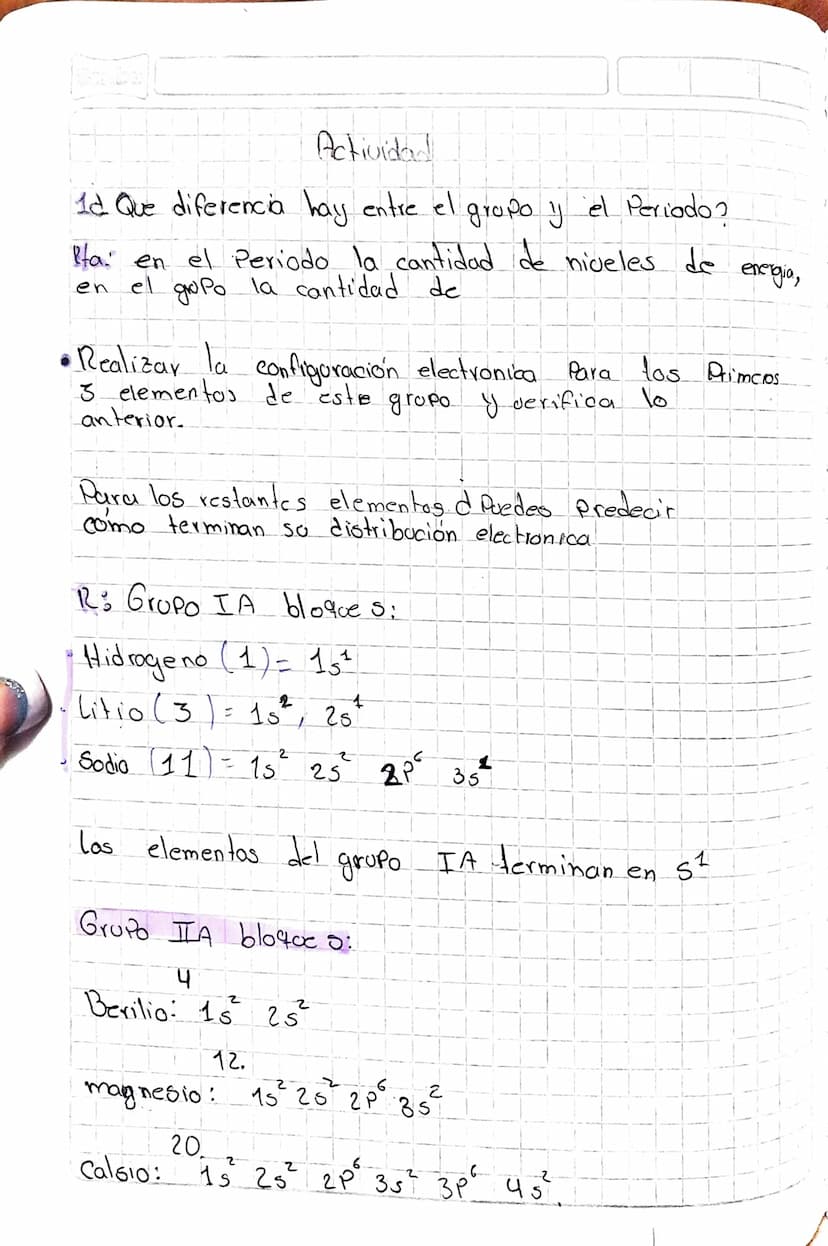 Actividad
1¿ Que diferencia hay entre el grupo y el Periodo?
Rta: en el Periodo la cantidad de niveles de energia,
en el gopo la cantidad de
• Realizar la configuración electronica Para los
3 elementos de este grupo y verifica lo
anterior.
Para los restantes elementos ¿ Puedes Predecir
cómo terminan su distribución electronica
R: Grupo IA bloque s:
Hidrogeno (1) = 1s¹
Litio (3) = 1s², 2s¹
Sodio (11) = 1s² 2s² 2p⁶ 3s¹
Los elementos del grupo IA terminan en s¹
Grupo IIA bloque s:
4
Berilio: 1s² 2s²
12.
magnesio: 1s² 2s² 2p⁶ 3s²
20.
Calsio: 1s² 2s² 2p⁶ 3s² 3p⁶ 4s².